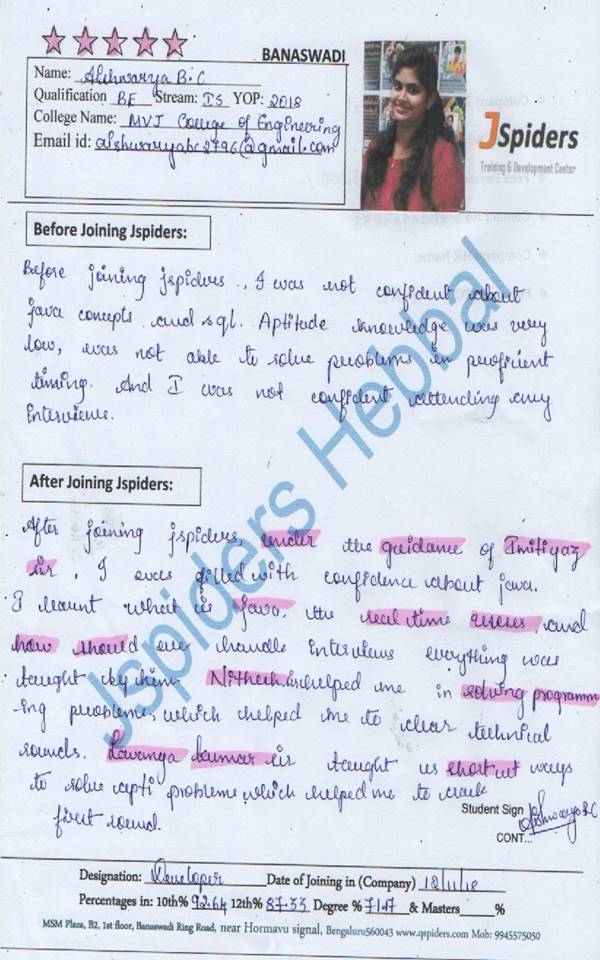 BANASWADI
Name: Aishwarya B.C
Qualification BE Stream: IS YOP: 2018
College Name: MVJ College of Engineering
Email id: aishwaryabc2796@gmail.com
JSpiders
Training & Development Center
Before Joining Jspiders:
Before joining jspiders., I was not confident about
java concepts and sql. Aptitude knowledge was very
low, was not able to solve problems in proficient
timing. And I was not confident attending any
interviews.
Jspiders Hebbal
After Joining Jspiders:
After joining jspiders, under the guidance of Imitiyaz
sir, I was filled with confidence about java.
I learnt what is Java, the real time and
how should we handle interviews everything was
taught by him. Nithesh helped me in solving programm
-ing problems, which helped me to clear technical
rounds. Lavanga kumar sir taught us short cut ways
to solve apti problems, which helped me to crack
first round.
Student Sign Aishwarya B.C
CONT...
Designation: Developer Date of Joining in (Company) 12/11/18
Percentages in: 10th% 92.64 12th% 87.33 Degree % 71.17 & Masters %
MSM Plaza, B2, 1st floor, Banaswadi Ring Road, near Hormavu signal, Bengaluru560043 www.qspiders.com Mob: 9945575050